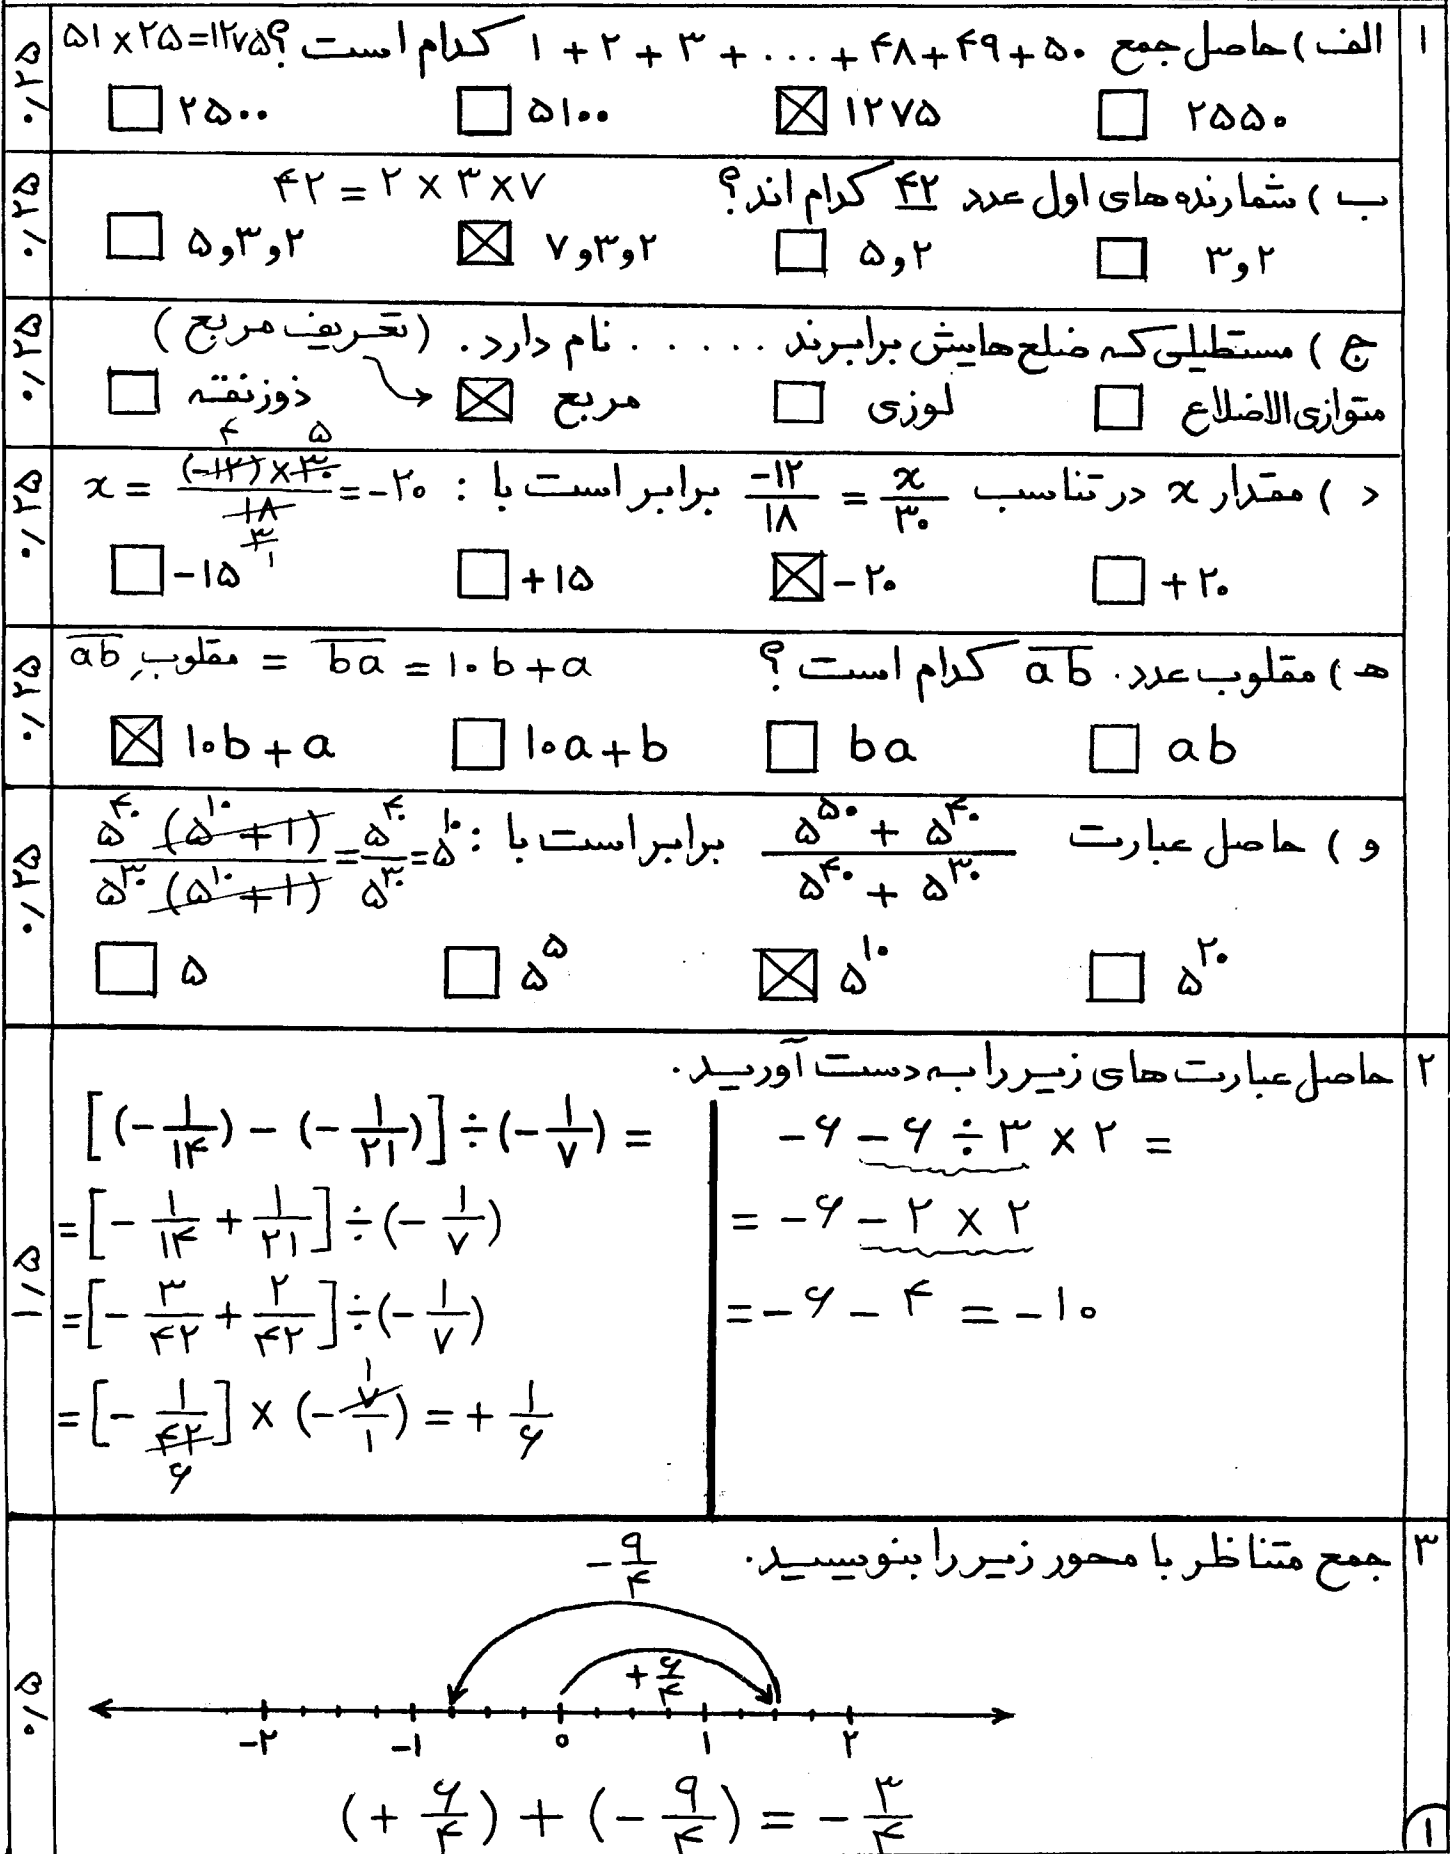 ۱ الف) حاصل جمع ۱ + ۲ + ۳ + ... + ۴۸ + ۴۹ + ۵۰ کدام است؟ ۵۱ × ۲۵ = ۱۲۷۵ ۰/۲۵
۲۵۵۰ □ ۱۲۷۵ ☒ ۵۱۰۰ □ ۲۵۰۰ □
ب) شمارنده های اول عدد ۴۲ کدام اند؟ ۴۲ = ۲ × ۳ × ۷ ۰/۲۵
۲و۳ □ ۲و۵ □ ۲و۳و۷ ☒ ۲و۳و۵ □
ج) مستطیلی که ضلع هایش برابرند ..... نام دارد. (تعریف مربع) ۰/۲۵
متوازی الاضلاع □ لوزی □ مربع ☒ ذوزنقه □
د) مقدار x در تناسب -۱۲/۱۸ = x/۳۰ برابر است با : x = (-۱۲)×۳۰/۱۸ = -۲۰ ۰/۲۵
۴ ۵ ۳ ۱
+۲۰ □ -۲۰ ☒ +۱۵ □ -۱۵ □
ه) مقلوب عدد ab̅ کدام است؟ مقلوب ab̅ = ba̅ = ۱۰b + a ۰/۲۵
ab □ ba □ ۱۰a + b □ ۱۰b + a ☒
و) حاصل عبارت (۵^۵۰ + ۵^۴۰)/(۵^۴۰ + ۵^۳۰) برابر است با : ۵^۴۰(۵^۱۰ + ۱)/۵^۳۰(۵^۱۰ + ۱) = ۵^۴۰/۵^۳۰ = ۵^۱۰ ۰/۲۵
۵^۲۰ □ ۵^۱۰ ☒ ۵^۵ □ ۵ □
۲ حاصل عبارت های زیر را به دست آورید. ۱/۵
-۶ - ۶ ÷ ۳ × ۲ =
= -۶ - ۲ × ۲
= -۶ - ۴ = -۱۰
[(-۱/۱۴) - (-۱/۲۱)] ÷ (-۱/۷) =
= [-۱/۱۴ + ۱/۲۱] ÷ (-۱/۷)
= [-۳/۴۲ + ۲/۴۲] ÷ (-۱/۷)
= [-۱/۴۲] × (-۷/۱) = +۱/۶
۱ ۶
۳ جمع متناظر با محور زیر را بنویسید. ۰/۵
-۹/۴
+۶/۴
-۲ -۱ ۰ ۱ ۲
(+۶/۴) + (-۹/۴) = -۳/۴
۱